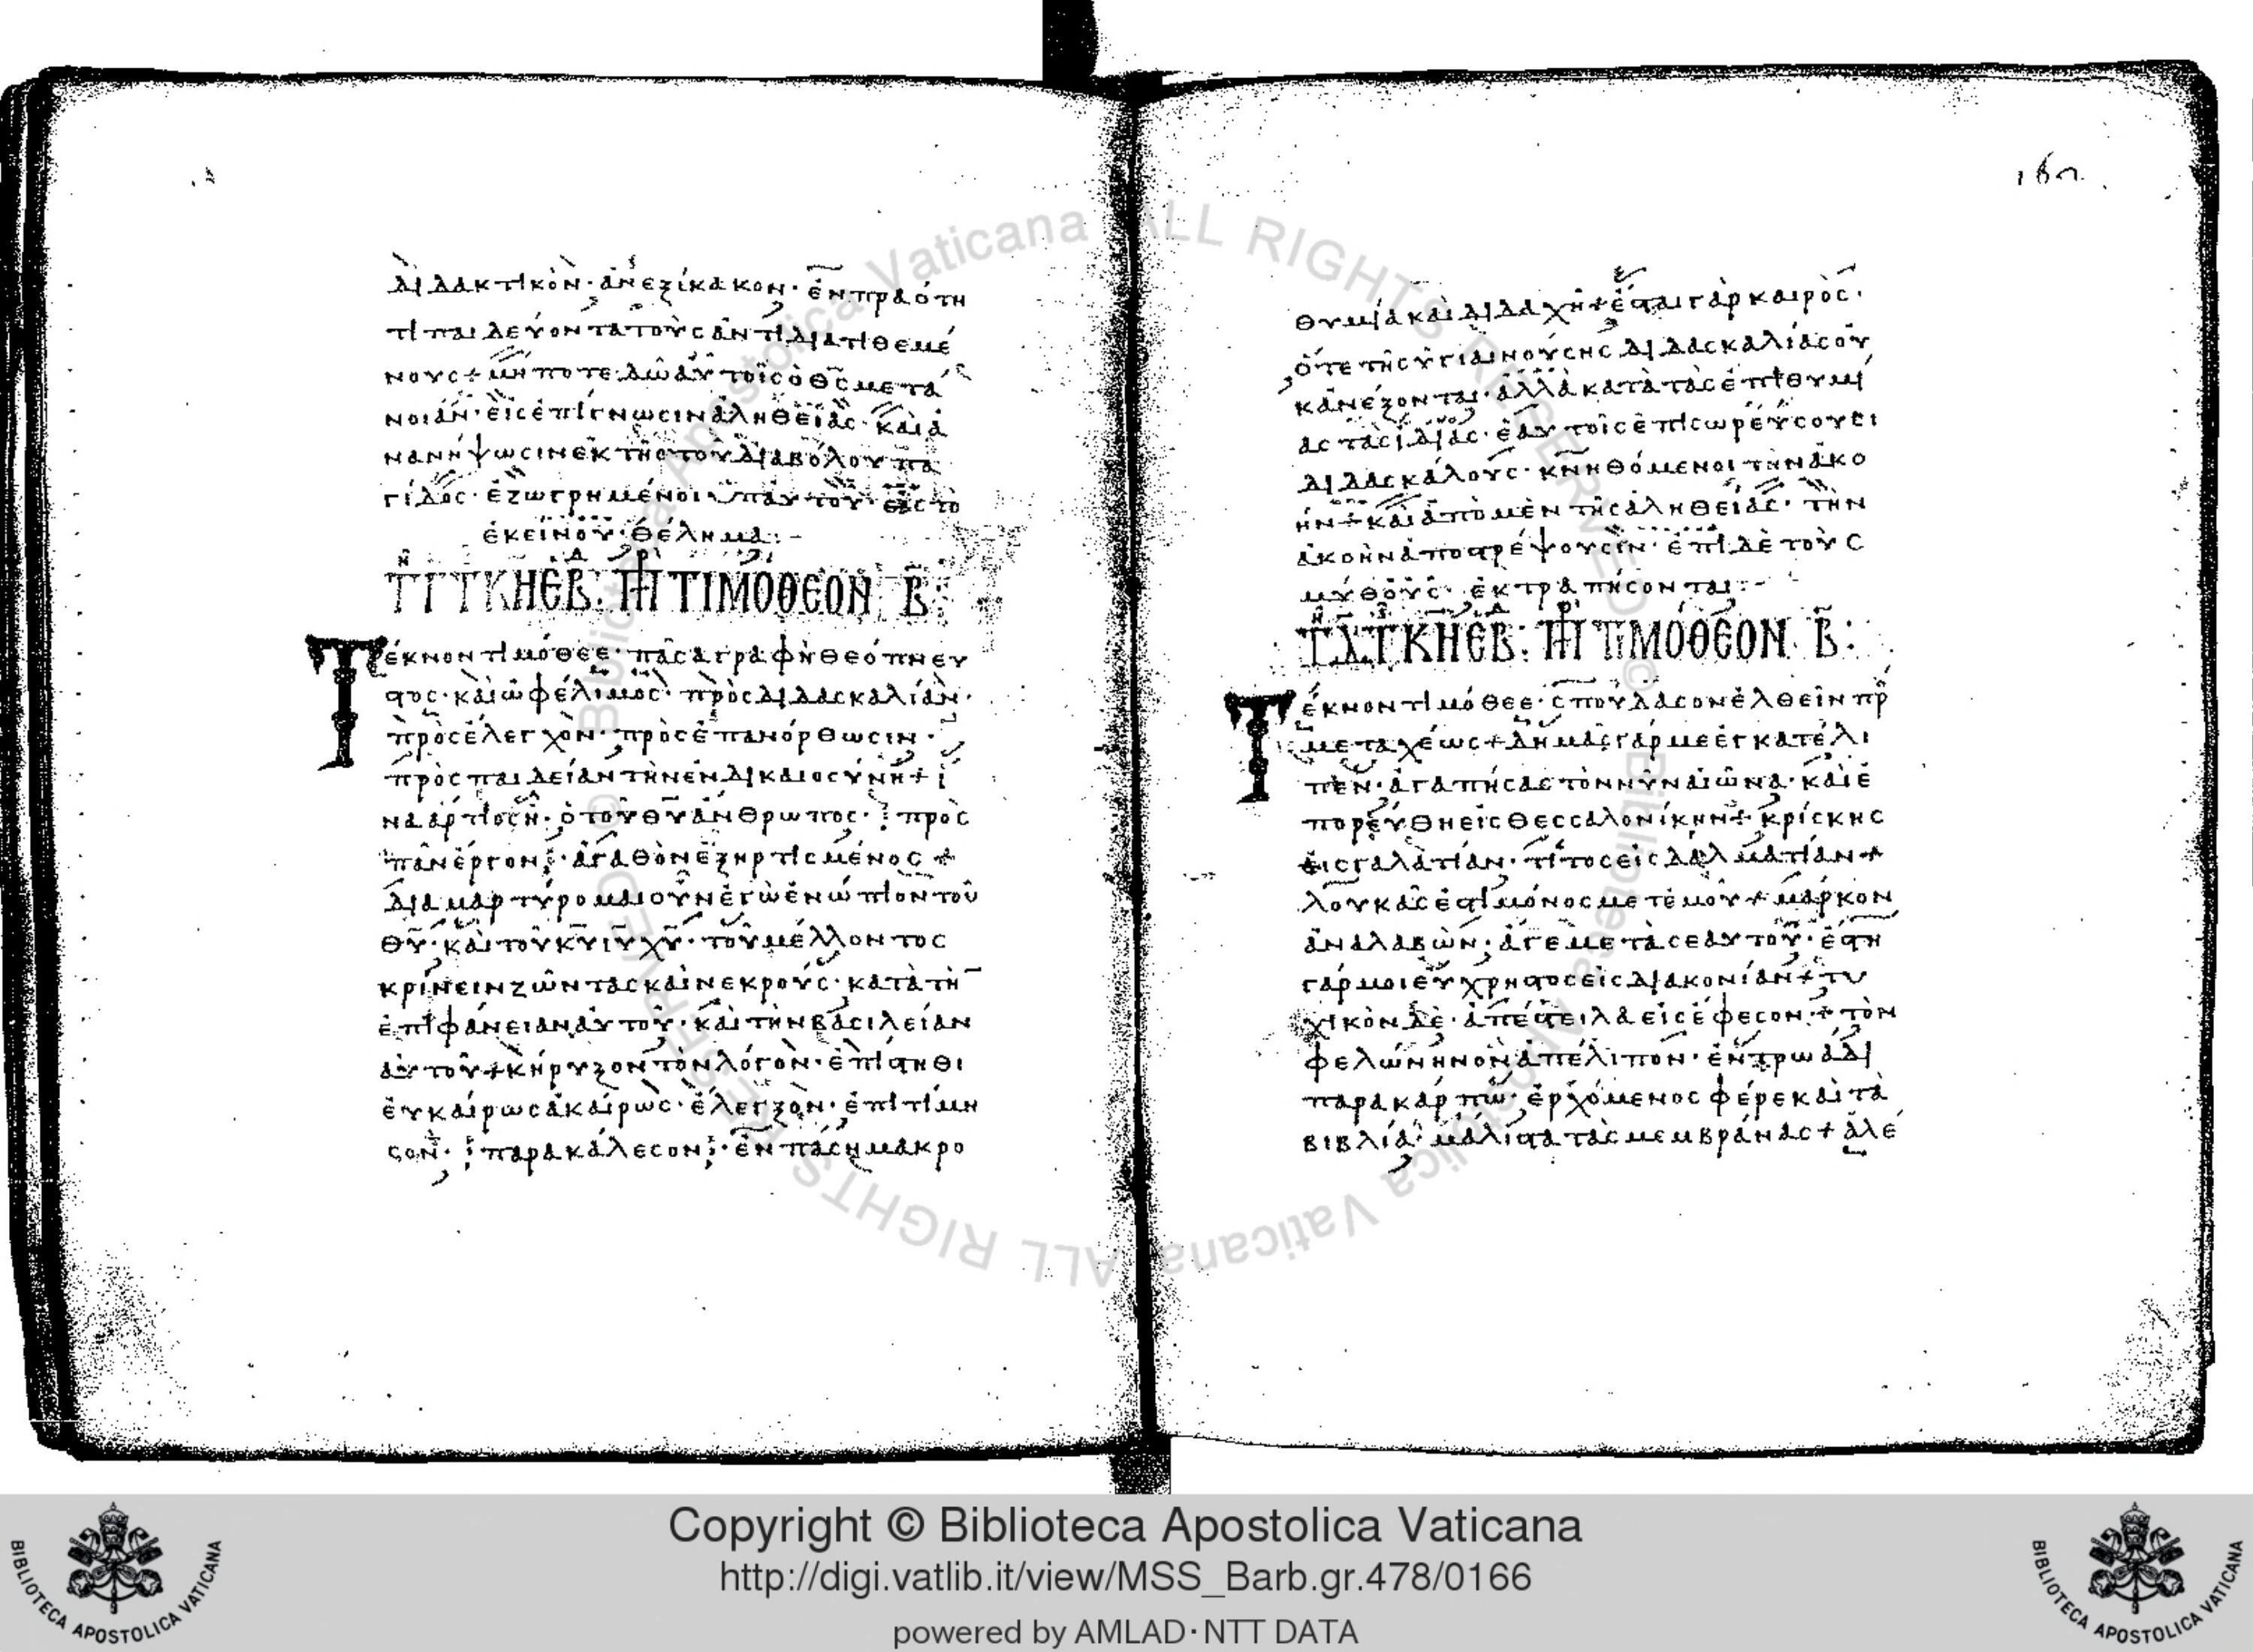 διδακτικὸν· ἀνεξίκακον· ἐν πραότη
τι παιδεύοντα τοὺς ἀντιδιατιθεμέ
νους + μήποτε δώῃ αὐτοῖς ὁ θς μετά
νοιαν· εἰς ἐπίγνωσιν ἀληθείας· καὶ ἀ
νανήψωσιν ἐκ τῆς τοῦ διαβόλου πα
γίδος· ἐζωγρημένοι ὑπ αὐτοῦ· εἰς τὸ
ἐκείνου· θέλημα:-
ΚΗ Ε Β: ΤΙΜΟΘΕΟΝ Β:
Τέκνον τιμόθεε· πᾶσα γραφὴ θεόπνευ
στος· καὶ ὠφέλιμος· πρὸς διδασκαλίαν·
πρὸς ἔλεγχον· πρὸς ἐπανόρθωσιν·
πρὸς παιδείαν τὴν ἐν δικαιοσύνῃ + ἵ
να ἄρτιος ᾖ· ὁ τοῦ θυ ἄνθρωπος· πρὸς
πᾶν ἔργον· ἀγαθὸν ἐξηρτισμένος +
διαμαρτύρομαι οὖν ἐγὼ ἐνώπιον τοῦ
θυ· καὶ τοῦ κυ ιυ χυ· τοῦ μέλλοντος
κρίνειν ζῶντας καὶ νεκρούς· κατὰ τὴ
ἐπιφάνειαν αὐτοῦ· καὶ τὴν βασιλείαν
αὐτοῦ + κήρυξον τὸν λόγον· ἐπίστηθι
εὐκαίρως ἀκαίρως· ἔλεγξον· ἐπιτίμη
σον· παρακάλεσον· ἐν πάσῃ μακρο
θυμίᾳ καὶ διδαχῇ + ἔσται γὰρ καιρὸς·
ὅτε τῆς ὑγιαινούσης διδασκαλίας οὐ
κ ἀνέξονται· ἀλλὰ κατὰ τὰς ἐπιθυμί
ας τὰς ἰδίας· ἑαυτοῖς ἐπισωρεύσουσι
διδασκάλους· κνηθόμενοι τὴν ἀκο
ήν + καὶ ἀπὸ μὲν τῆς ἀληθείας· τὴν
ἀκοὴν ἀποστρέψουσιν· ἐπὶ δὲ τοὺς
μύθους· ἐκτραπήσονται:-
ΚΗ Ε Β: ΤΙΜΟΘΕΟΝ Β:
Τέκνον τιμόθεε· σπούδασον ἐλθεῖν πρ
με ταχέως + δημᾶς γάρ με ἐγκατέλι
πεν· ἀγαπήσας τὸν νῦν αἰῶνα· καὶ ἐ
πορεύθη εἰς θεσσαλονίκην + κρίσκης
εἰς γαλατίαν· τίτος εἰς δαλματίαν +
λουκᾶς ἐστὶ μόνος μετ ἐμοῦ + μάρκον
ἀναλαβὼν· ἄγε μετὰ σεαυτοῦ· ἔστι
γάρ μοι εὔχρηστος εἰς διακονίαν + τυ
χικὸν δὲ· ἀπέστειλα εἰς ἔφεσον· + τὸν
φελώνην ὃν ἀπέλιπον· ἐν τρωάδι
παρα κάρπῳ· ἐρχόμενος φέρε καὶ τὰ
βιβλία· μάλιστα τὰς μεμβράνας + ἀλέ
Copyright © Biblioteca Apostolica Vaticana
http://digi.vatlib.it/view/MSS_Barb.gr.478/0166
powered by AMLAD·NTT DATA
BIBLIOTECA APOSTOLICA VATICANA
BIBLIOTECA APOSTOLICA VATICANA